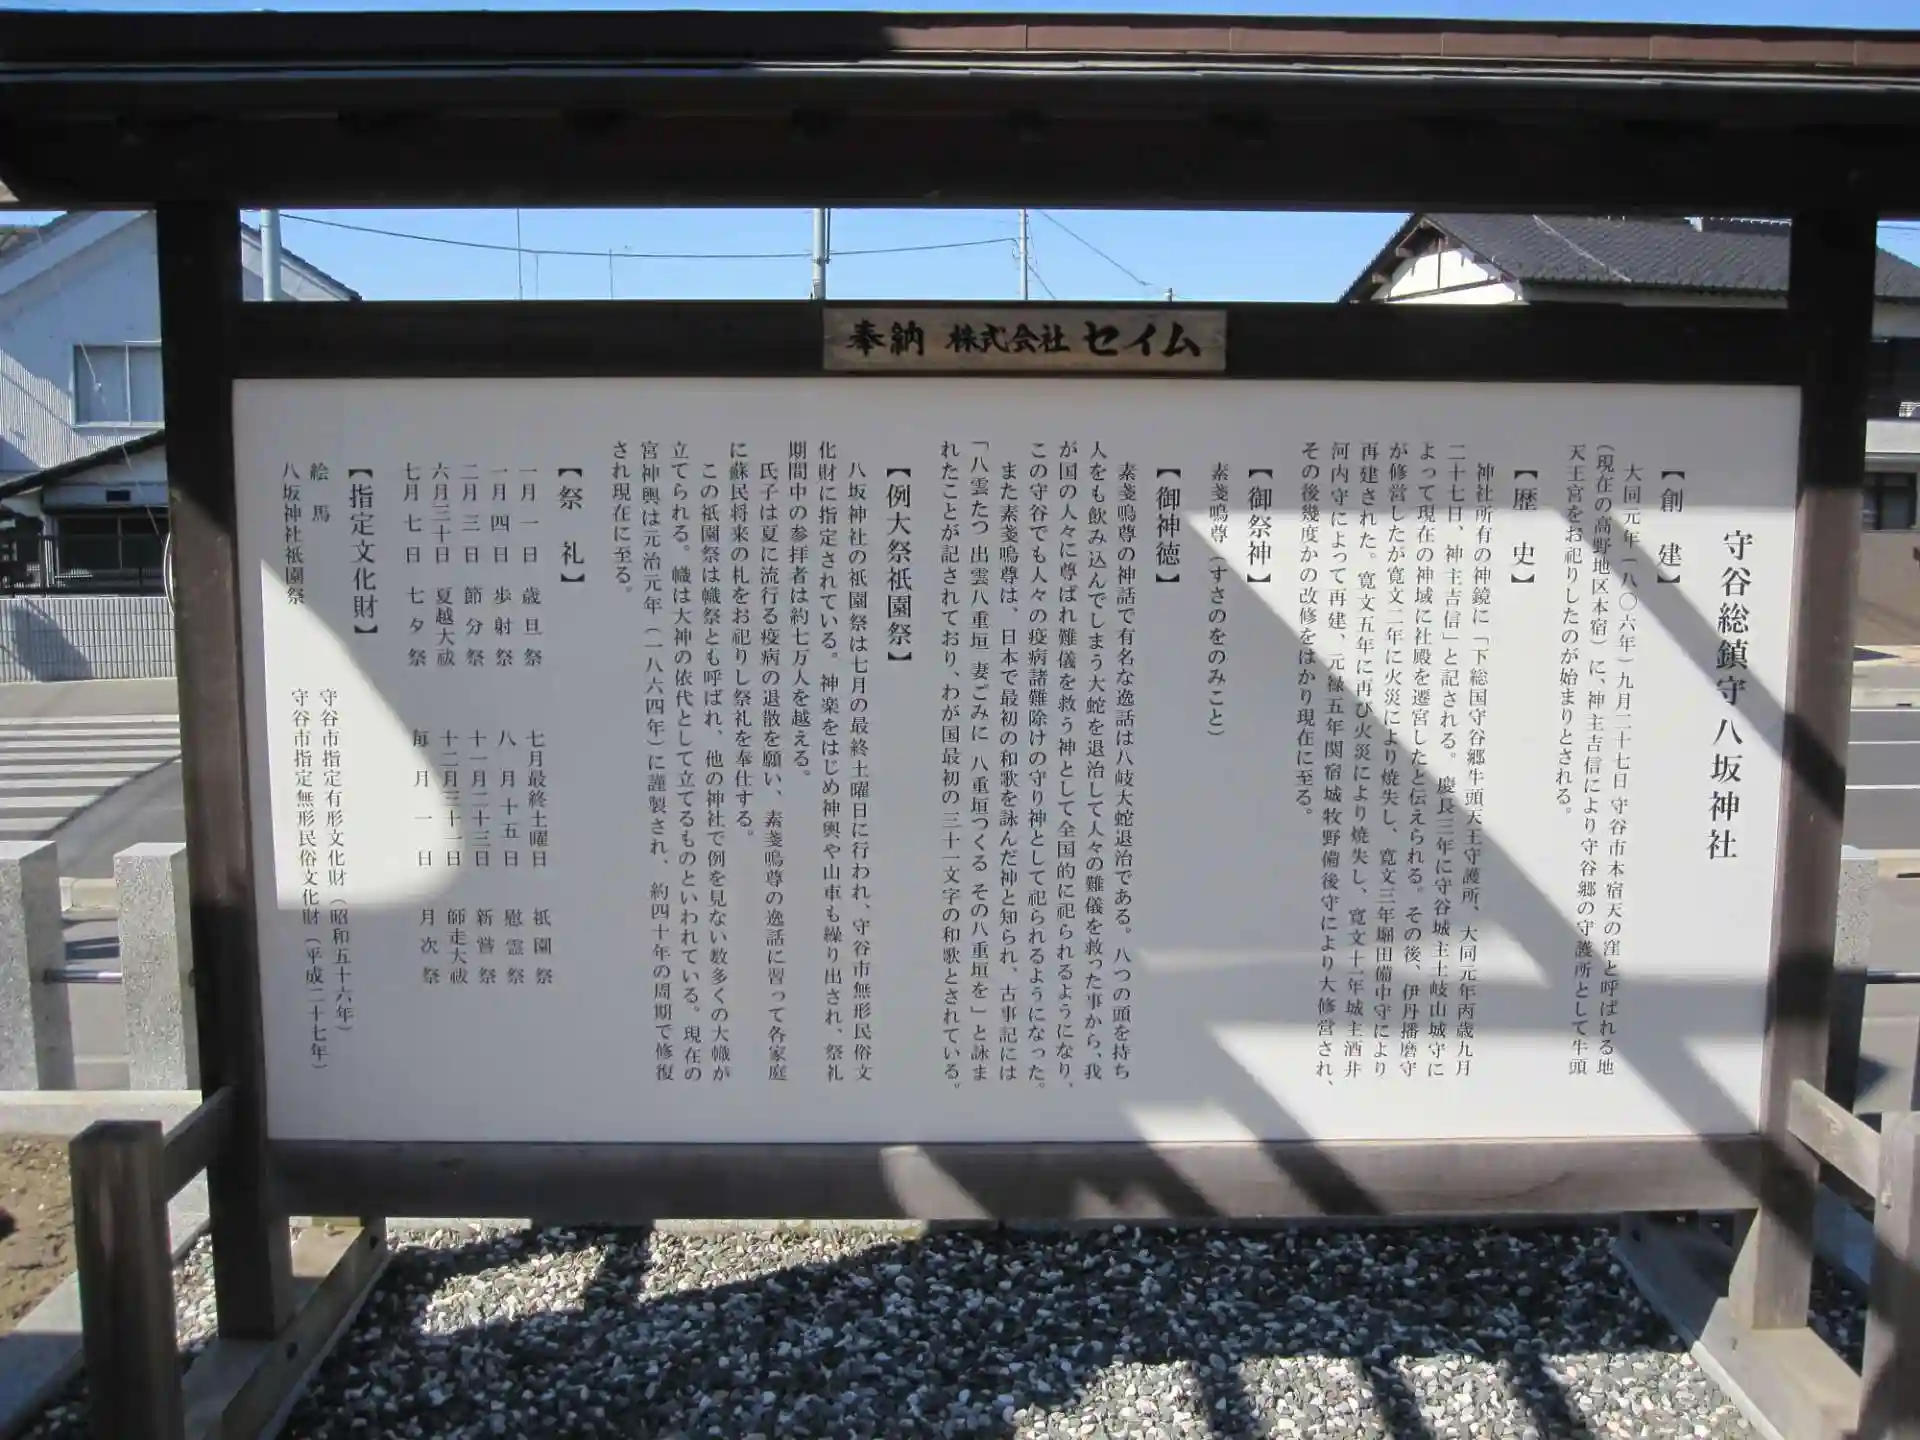 奉納 株式会社 セイム
守谷総鎮守八坂神社
【創 建】
大同元年(八〇六年)九月二十七日 守谷市本宿天の窪と呼ばれる地
(現在の高野地区本宿)に、神主吉信により守谷郷の守護所として牛頭
天王宮をお祀りしたのが始まりとされる。
【歴 史】
神社所有の神鏡に「下総国守谷郷牛頭天王守護所、大同元年丙歳九月
二十七日、神主吉信」と記される。慶長三年に守谷城主土岐山城守に
よって現在の神域に社殿を遷宮したと伝えられる。その後、伊丹播磨守
が修営したが寛文二年に火災により焼失し、寛文三年堀田備中守により
再建された。寛文五年に再び火災により焼失し、寛文十一年城主酒井
河内守によって再建、元禄五年関宿城牧野備後守により大修営され、
その後幾度かの改修をはかり現在に至る。
【御祭神】
素戔嗚尊(すさのをのみこと)
【御神徳】
素戔嗚尊の神話で有名な逸話は八岐大蛇退治である。八つの頭を持ち
人をも飲み込んでしまう大蛇を退治して人々の難儀を救った事から、我
が国の人々に尊ばれ難儀を救う神として全国的に祀られるようになり、
この守谷でも人々の疫病諸難除けの守り神として祀られるようになった。
また素戔嗚尊は、日本で最初の和歌を詠んだ神と知られ、古事記には
「八雲たつ 出雲八重垣 妻ごみに 八重垣つくる その八重垣を」と詠ま
れたことが記されており、わが国最初の三十一文字の和歌とされている。
【例大祭祇園祭】
八坂神社の祇園祭は七月の最終土曜日に行われ、守谷市無形民俗文
化財に指定されている。神楽をはじめ神輿や山車も繰り出され、祭礼
期間中の参拝者は約七万人を越える。
氏子は夏に流行る疫病の退散を願い、素戔嗚尊の逸話に習って各家庭
に蘇民将来の札をお祀りし祭礼を奉仕する。
この祇園祭は幟祭とも呼ばれ、他の神社で例を見ない数多くの大幟が
立てられる。幟は大神の依代として立てるものといわれている。現在の
宮神輿は元治元年(一八六四年)に謹製され、約四十年の周期で修復
され現在に至る。
【祭 礼】
一月一日 歳旦祭 七月最終土曜日 祇園祭
一月四日 歩射祭 八月十五日 慰霊祭
二月三日 節分祭 十一月二十三日 新嘗祭
六月三十日 夏越大祓 十二月三十一日 師走大祓
七月七日 七夕祭 毎月一日 月次祭
【指定文化財】
絵馬 守谷市指定有形文化財(昭和五十六年)
八坂神社祇園祭 守谷市指定無形民俗文化財(平成二十七年)